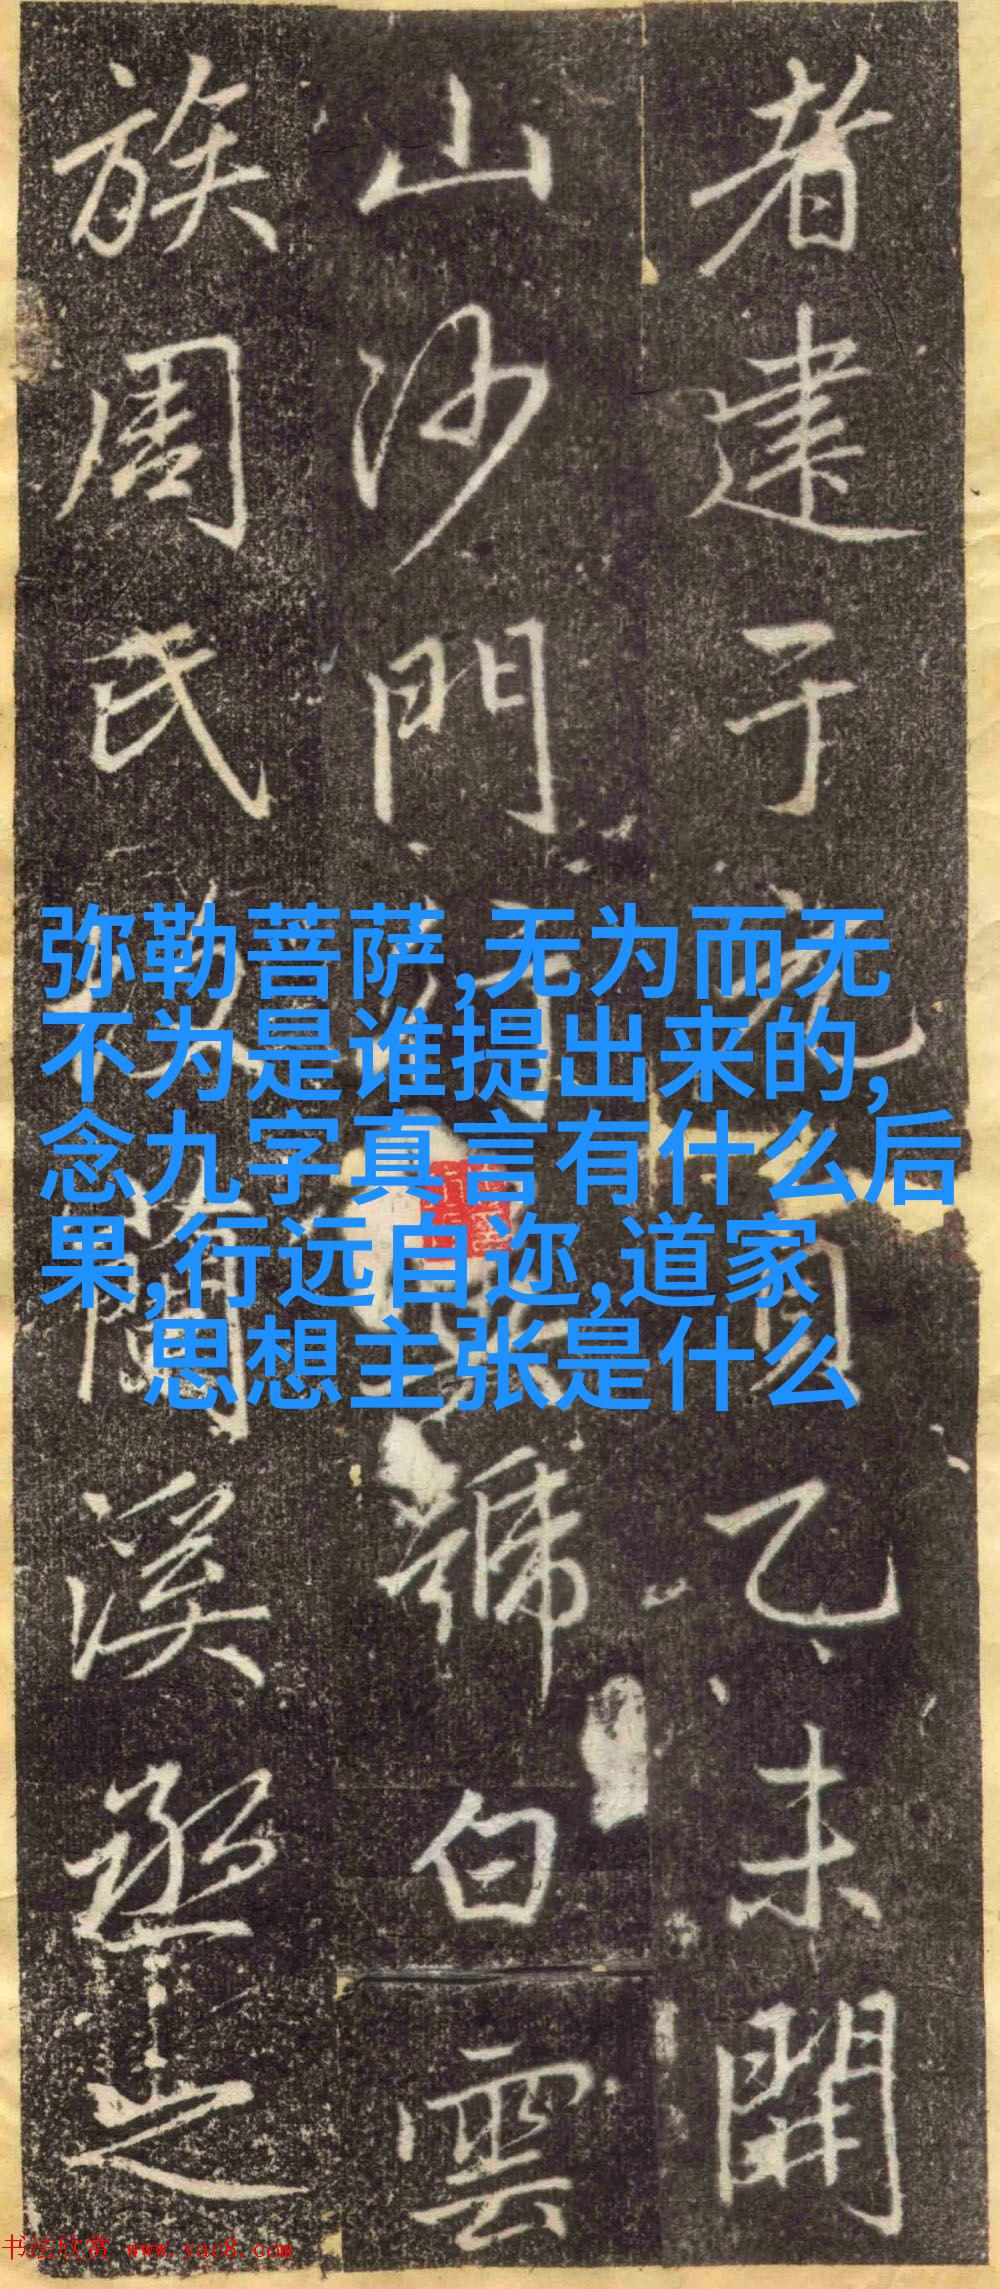 者建于元
自乙未開
山沙門行
號白雲
族周氏
蘭溪丞之
弥勒菩萨,无为而无
不为是谁提出来的,
念九字真言有什么后
果,行远自迩,道家
思想主张是什么
书法欣赏 www.yac8.com